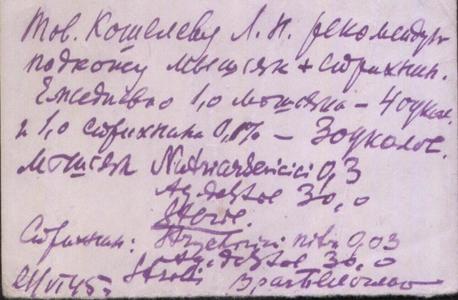 Тов. Кошелеву Л. Н. рекомендую
подкожу мышьяк + стрихнин.
Ежедневно 1,0 мышьяка – 40 укол.
и 1,0 стрихнина 0,1% – 30 уколов.
Мышьяк Natri arsenicici 0,3
Aq. destil 30,0
Steril.
Стрихнин: Strychnini nitr. 0,03
Aq. destil 30,0
21/VI 45 Sterili Врач